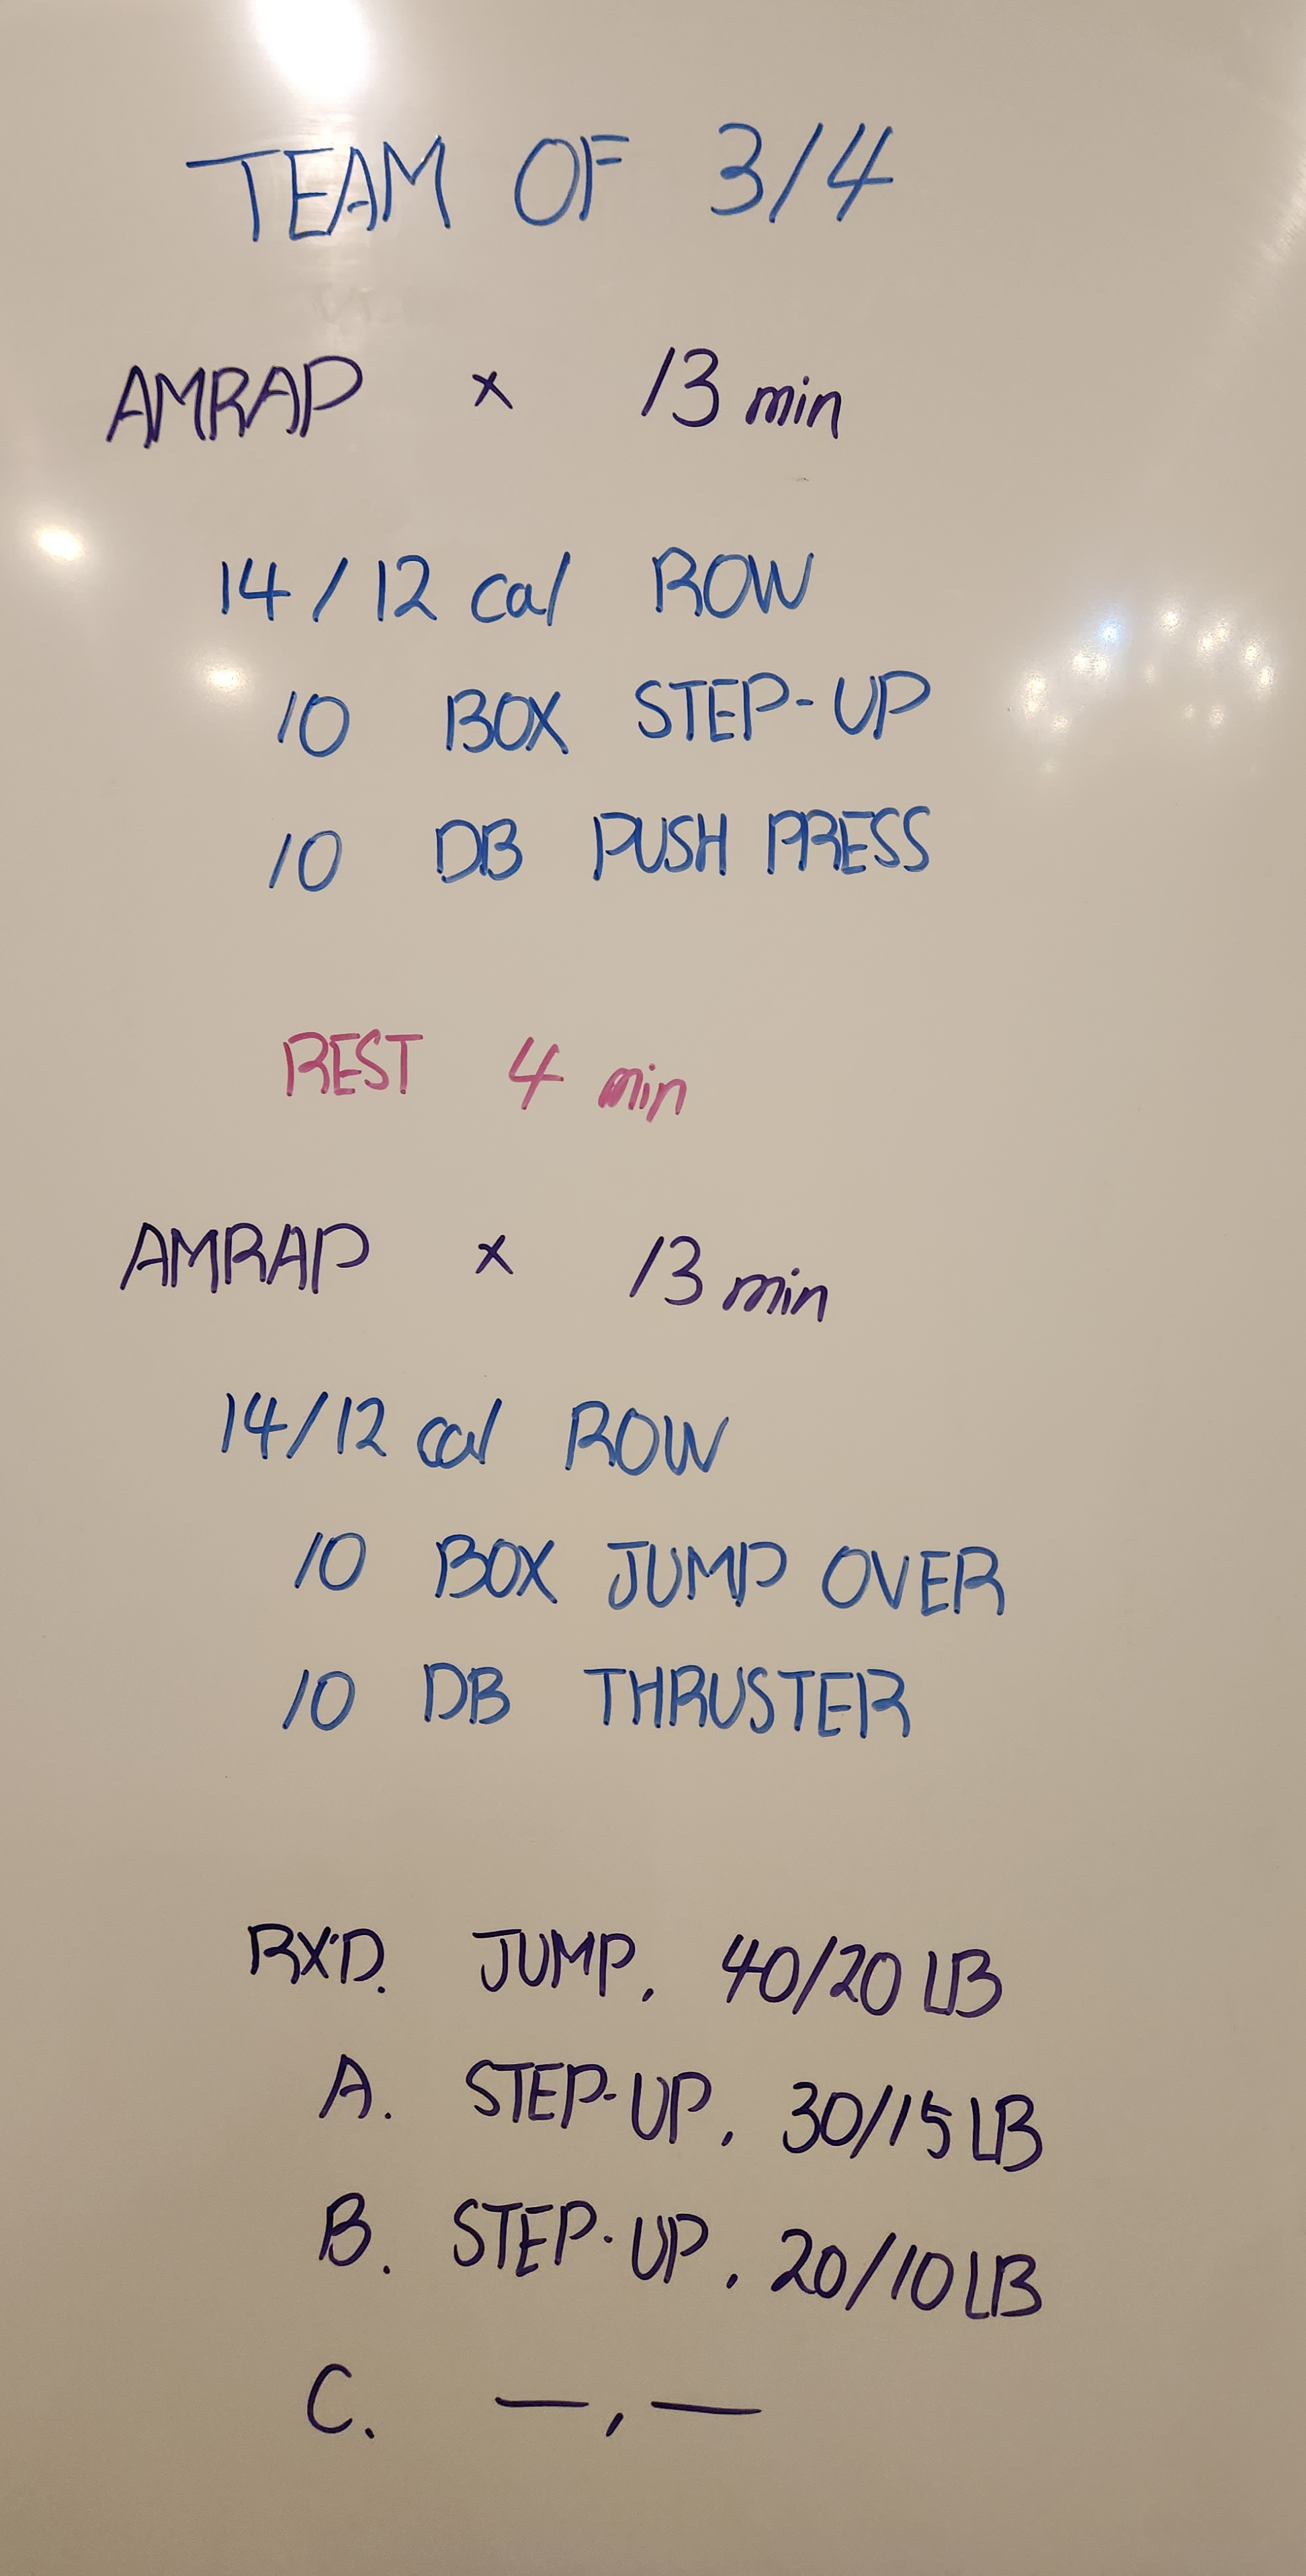 TEAM OF 3/4
AMRAP × 13 min
14/12 cal ROW
10 BOX STEP-UP
10 DB PUSH PRESS
REST 4 min
AMRAP × 13 min
14/12 cal ROW
10 BOX JUMP OVER
10 DB THRUSTER
RX'D. JUMP, 40/20 LB
A. STEP-UP, 30/15 LB
B. STEP-UP, 20/10 LB
C. —, —